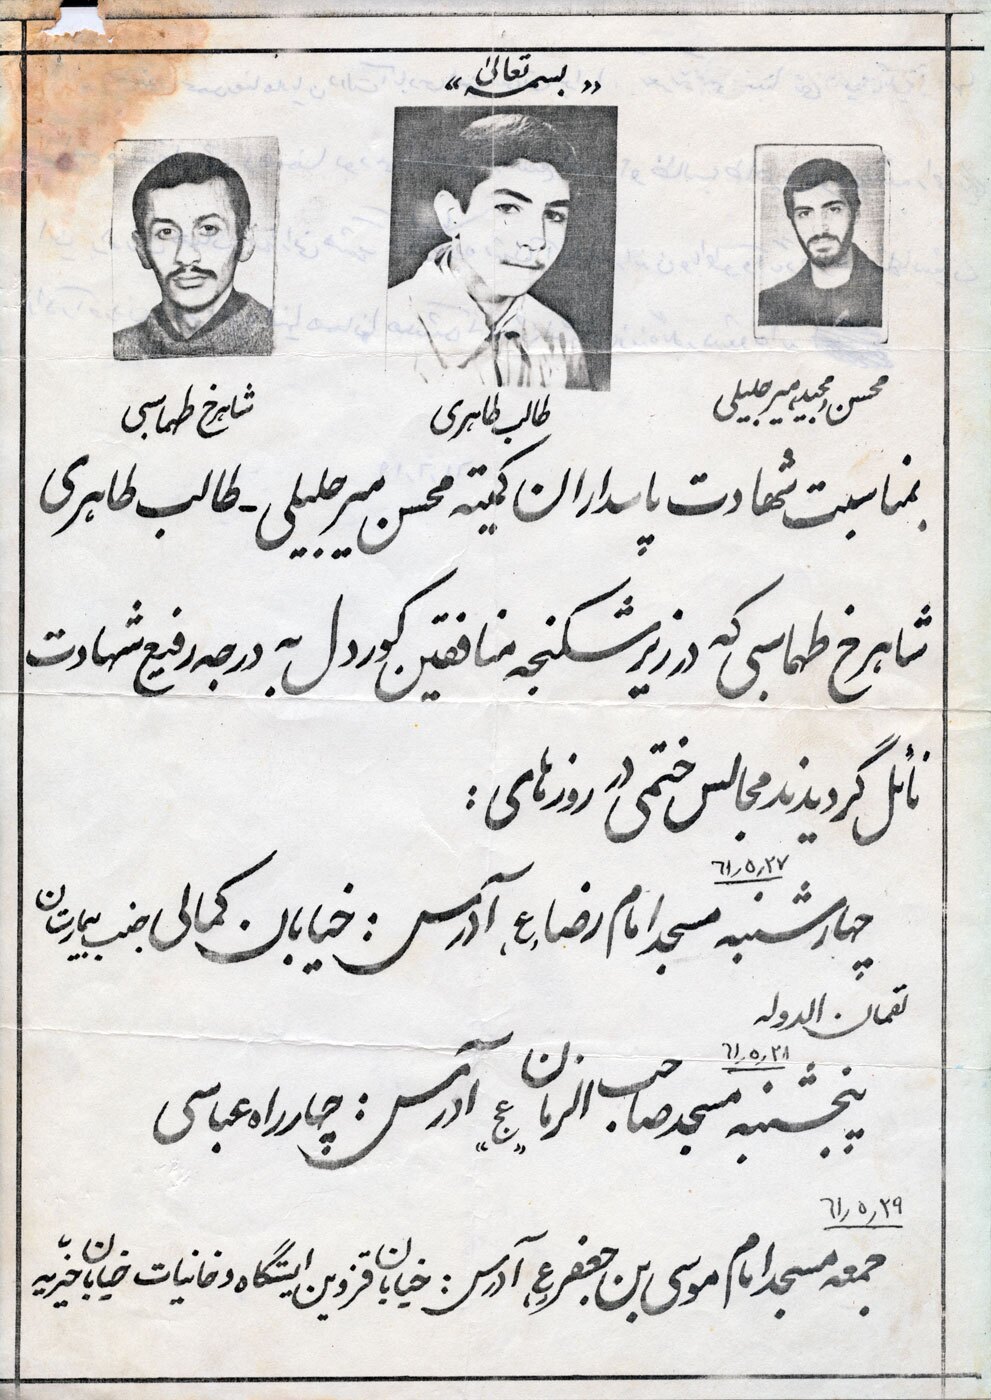 «بسمه تعالی»
محسن (مجید) میرجلیلی
طالب طاهری
شاهرخ طهماسبی
بمناسبت شهادت پاسداران کمیته محسن میرجلیلی - طالب طاهری
شاهرخ طهماسبی که در زیر شکنجه منافقین کوردل به درجه رفیع شهادت
نائل گردیدند مجالس ختمی در روزهای :
۶۱٫۵٫۲۷
چهارشنبه مسجد امام رضا (ع) آدرس : خیابان کمالی جنب بیمارستان
لقمان الدوله
۶۱٫۵٫۲۸
پنجشنبه مسجد صاحب الزمان «عج» آدرس : چهارراه عباسی
۶۱٫۵٫۲۹
جمعه مسجد امام موسی بن جعفر (ع) آدرس : خیابان قزوین ایستگاه دخانیات خیابان خیریه